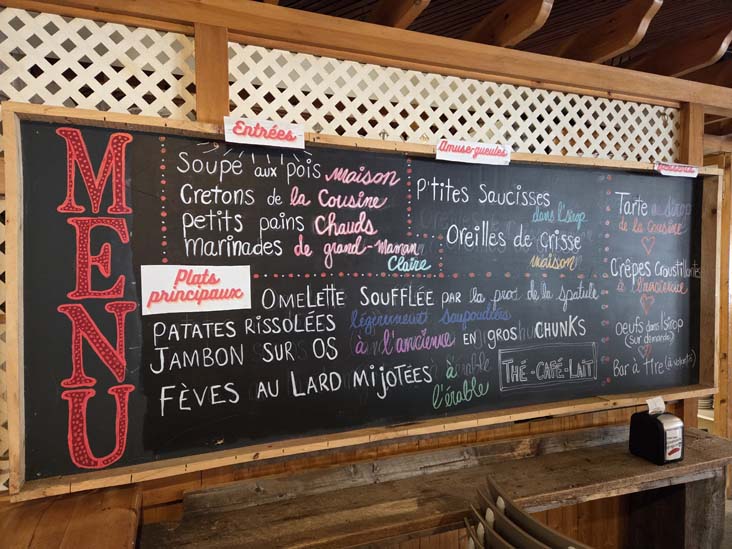 MENU
Entrées
Soupe aux pois maison
Cretons de la Cousine
petits pains Chauds
marinades de grand-maman
Claire
Amuse-gueules
P'tites Saucisses
dans l'sirop
Oreilles de Crisse
maison
Plats
principaux
OMELETTE SOUFFLÉE par la pro de la spatule
PATATES RISSOLÉES légèrement saupoudrées
JAMBON SUR OS à l'ancienne EN gros CHUNKS
FÈVES AU LARD MIJOTÉES à
l'érable
THÉ-CAFÉ-LAIT
Tarte au sirop
de la cousine
Crêpes Croustillantes
à l'ancienne
oeufs dans l'sirop
(sur demande)
Bar à tire (à volonté)